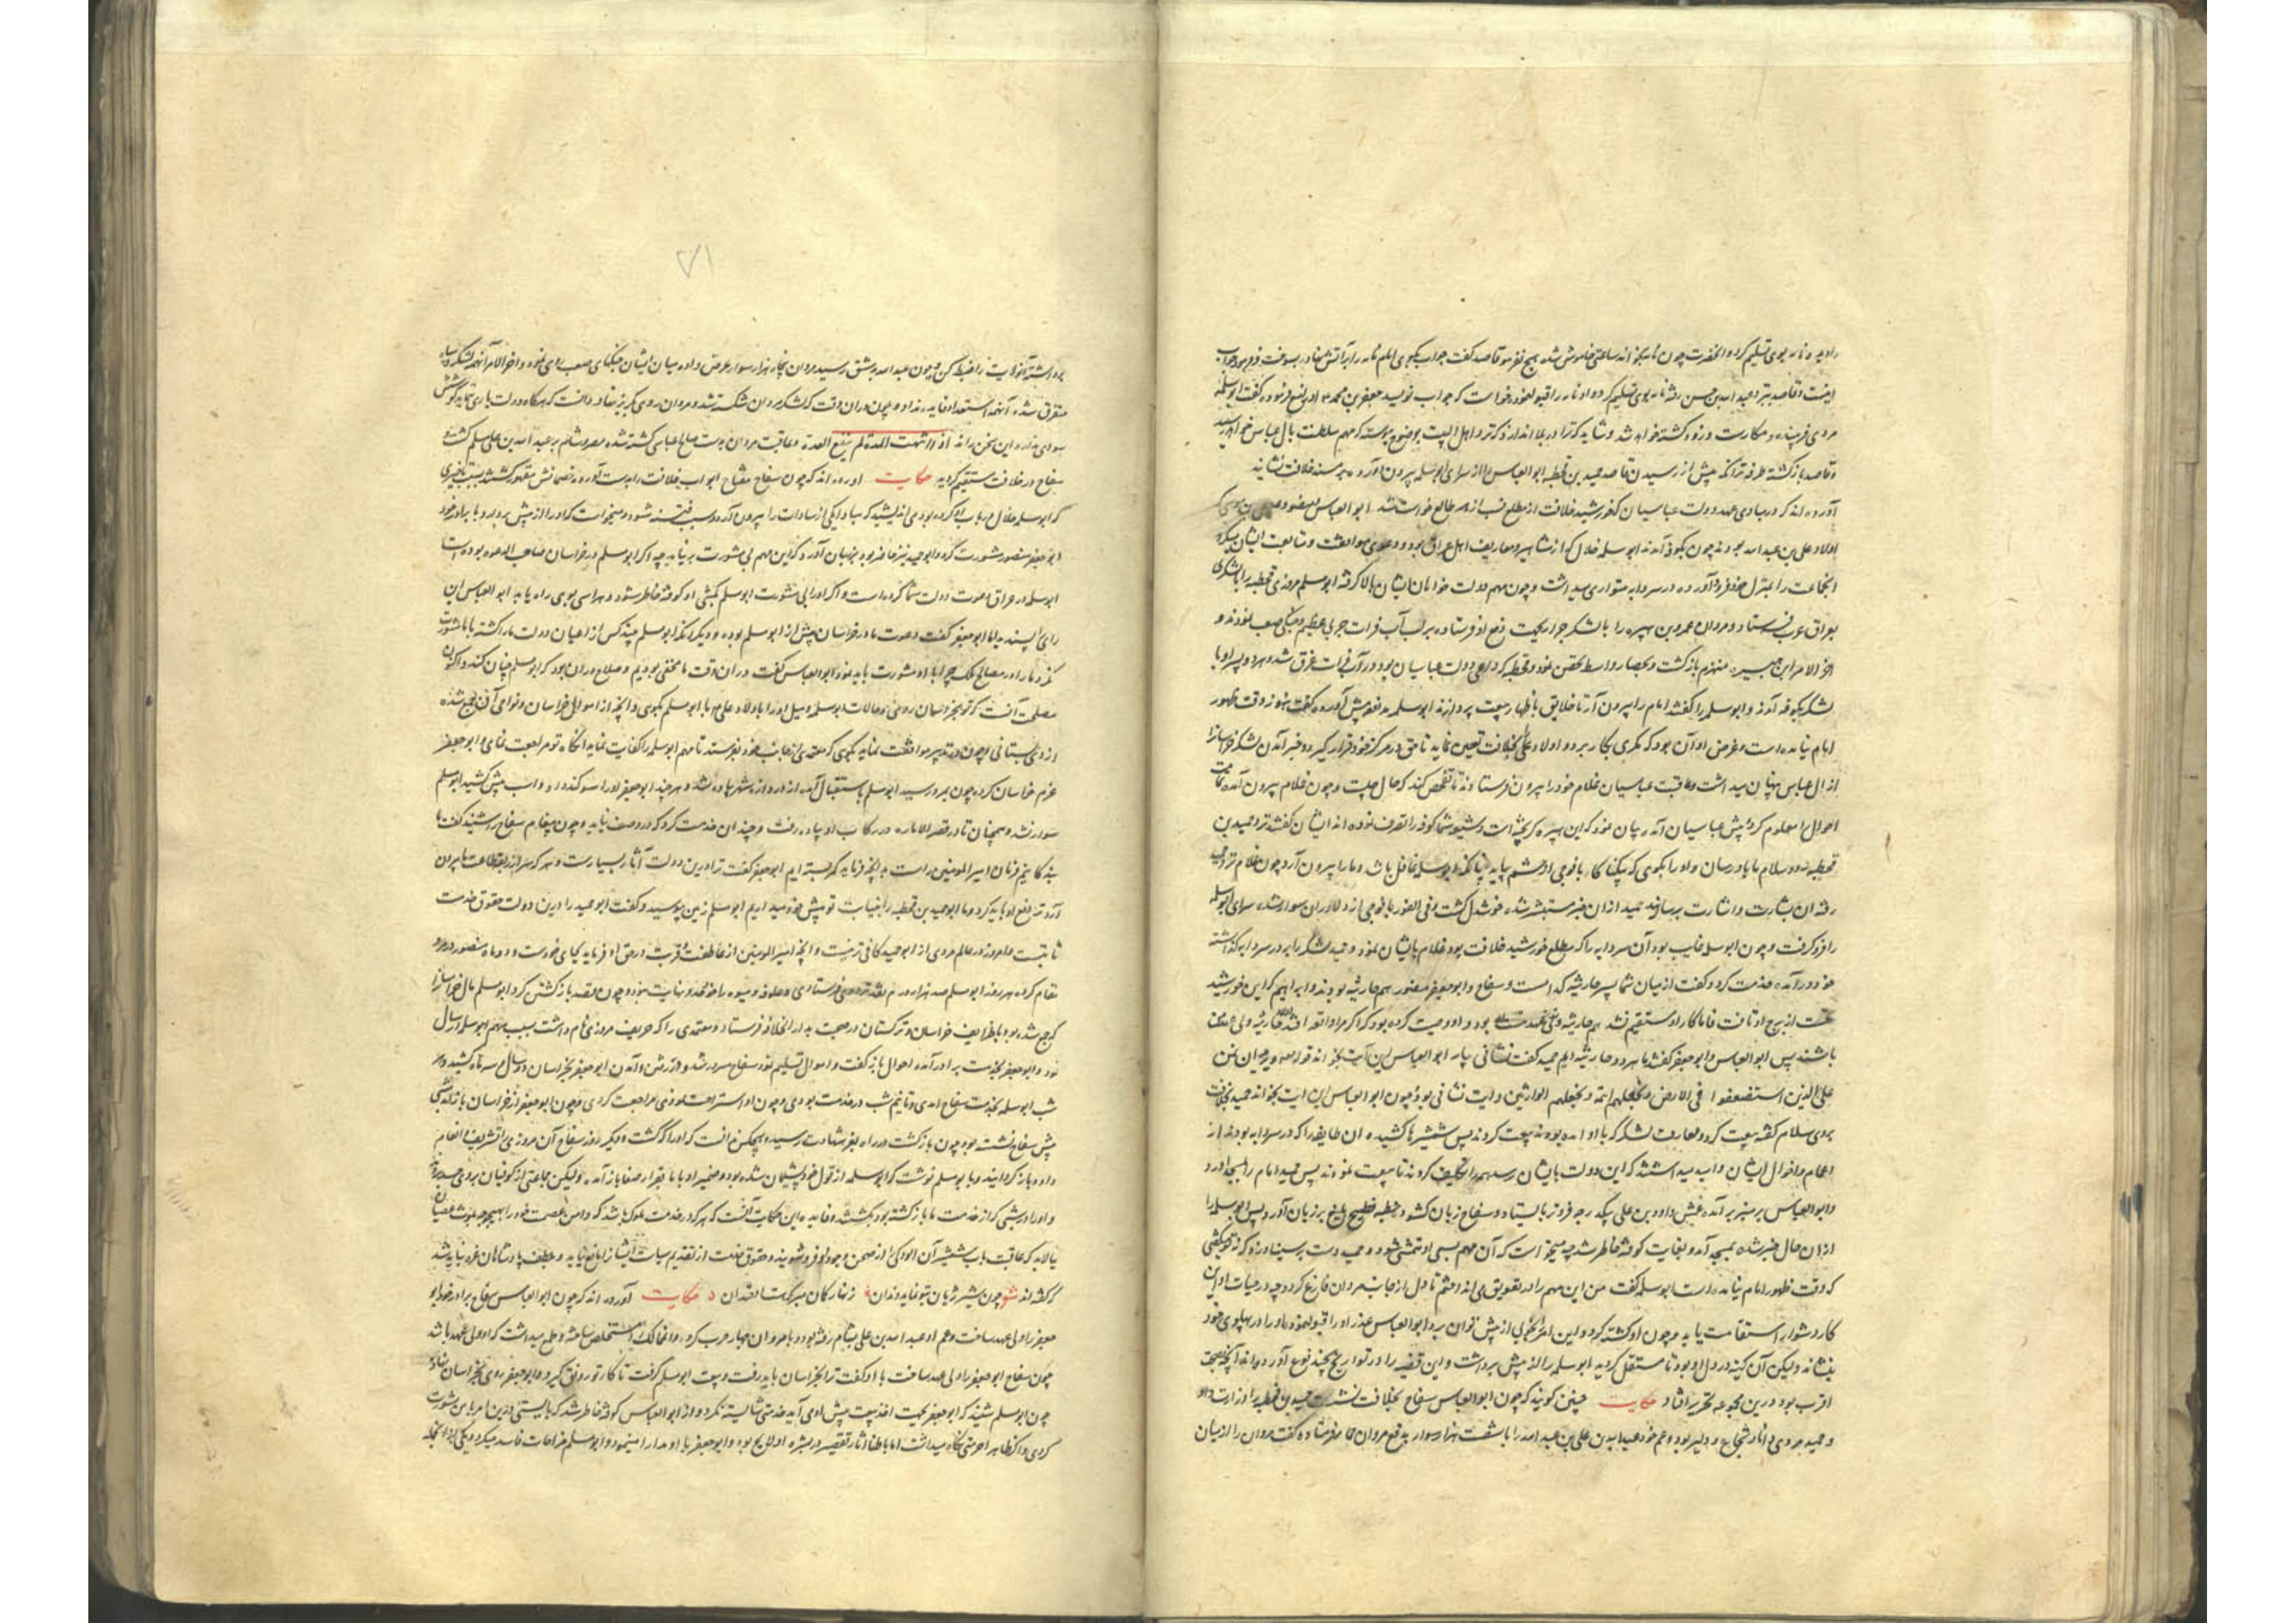 اینست و قاصد نزد عبد الله بن حسن رفته نامه بوی تسلیم کرد و او نامه را قبول نمود و خواست که جواب نویسد جعفر بن محمد او را منع فرموده گفت ابو سلمه
مردی فریبنده و مکارست و زود کشته خواهد شد و شاید که ترا در بلا اندازد که نزد اهل البیت بوضوح پیوسته که مهم سلطنت بآل عباس خواهد رسید
و قاصد باز گشته طرفه ترانکه پیش از رسیدن قاصد حمید بن قحطبه ابو العباس را از سرای ابو سلمه بیرون آورده بر مسند خلافت نشاند
آورده اند که در مبادی عهد دولت عباسیان که خورشید خلافت از مطلع نسب ازهر طالع خواست شد ابو العباس و منصور
اولاد علی بن عبد الله بودند چون بکوفه آمدند ابو سلمه خلال که از مشاهیر و معارف اهل عراق بود و دعوی موافقت و متابعت ایشان میکرد
انجماعت را بمنزل خود فرود آورده در سردابه متواری میداشت و چون مهم دولت خواهان ایشان بالا گرفت ابو مسلم مروزی قحطبه را با لشکری
بعراق عرب فرستاد و مروان عمرو بن هبیره را با لشکر جرار بجهت دفع او فرستاده بر لب آب فرات حربی عظیم و جنگی صعب نمودند و
اخر الامر ابن هبیره منهزم باز گشت و بحصار واسط تحصن نمود و قحطبه که داعی دولت عباسیان بود در آب فرات غرق شد و هر دو پسر او با
لشکر بکوفه آمدند و ابو سلمه را گفتند امام را بیرون آر تا خلایق باظهار بیعت پردازند ابو سلمه عذر پیش آورده گفت هنوز وقت ظهور
امام نیامده است و غرض او آن بود که مکری بکار برد و اولاد علی بخلافت تعیین نماید تا حق در مرکز خود قرار گیرد و خبر آمدن لشکر خراسان را
از ال عباس پنهان میداشت و عاقبت عباسیان غلام خود را بیرون فرستادند تا تفحص کند که حال چیست و چون غلام بیرون آمده
احوال را معلوم کرد پیش عباسیان آمده بیان نمود که ابن هبیره گریخته است و شیعه شما کوفه را تصرف نموده اند ایشان گفتند نزد حمید بن
قحطبه رو و سلام ما باو رسان و او را بگوی که
رفته ان بشارت و اشارت برساند حمید از ان خبر مستبشر شده خوشدل گشت و فی الفور با فوجی از دلاوران سوار شده سرای ابو سلمه
را فرو گرفت و چون ابو سلمه غایب بود آن سردابه را که مطلع خورشید خلافت بود غلام بایشان نمود و حمید لشکر را بر در سردابه گذاشته
خود درآمده خدمت کرد و گفت از میان شما پسر حارثیه کدام است و سفاح و ابو جعفر منصور هم حارثیه بودند و ابراهیم که این خورشید
باشند پس ابو العباس و ابو جعفر گفتند ما هر دو حارثیه ایم حمید گفت نشانی بیار ابو العباس این آیت بخواند قوله تعالی و نرید ان نمن
علی الذین استضعفوا فی الارض و نجعلهم ائمه و نجعلهم الوارثین و این آیت نشانی بود و چون ابو العباس این آیت بخواند حمید بخلافت
بروی سلام گفته بیعت کرد و معارف لشکر که با او آمده بودند بیعت کردند پس شمشیرها کشیده ان طایفه را که در سردابه بودند از
اعمام و اخوال ایشان و امید میداشتند که این دولت بایشان رسد همه را تکلیف کردند تا بیعت نمودند پس حمید امام را بمسجد آورد
و ابو العباس بر منبر بر آمده عمش داود بن علی یک درجه فروتر بایستاد و سفاح زبان گشود و خطبه فصیح بلیغ بر زبان آورد پس ابو سلمه را
از ان حال خبر شده بمسجد آمد و بغایت کوفته خاطر شد
که وقت ظهور امام نیامده است ابو سلمه گفت من این مهم را در تعویق می انداختم تا دل از جانب مروان فارغ گردد چه در حیات او این
کار دشوار استقامت یابد و چون او کشته گردد این امر بخوبی از پیش توان برد ابو العباس عذر او را قبول نمود و او را در پهلوی خود
بنشاند ولیکن آن کینه در دل او بود تا مستقل گردید ابو سلمه را از پیش برداشت و این قضیه را در تواریخ بچند نوع آورده اند آنچه بصحت
اقرب بود درین مجموعه تحریر افتاد حکایت چنین گویند که چون ابو العباس سفاح بخلافت نشست حمید بن قحطبه را وزارت داد
و حمید مردی دانا و شجاع و دلیر بود و عم خود عبد الله بن علی بن عبد الله را با شصت هزار سوار بدفع مروان حمار فرستاده گفت مروان را از میان
برداشته آنولایت را ضبط کن و چون عبد الله بدمشق رسید مروان پنجاه هزار سوار عرض داده میان ایشان جنگهای صعب روی نمود و اخر الامر آنهمه لشکر و سپاه
متفرق شده آنهمه استعداد فایده نداد و چون در ان وقت که لشکر مروان شکسته شد و مروان روی بگریز نهاد دانست که هرگاه دولت یاری ننماید کوشش
سودی ندارد این سخن راند اذا انتهت المدة لم ینفع العدة و عاقبت مروان بدست صالح عباسی کشته شده مصر و شام بر عبد الله بن علی مسلم گشت و
سفاح در خلافت مستقیم گردید حکایت آورده اند که چون سفاح مفتاح ابواب خلافت را بدست آورده
ابو جعفر منصور مشورت کرد و ابو حمید نیز حاضر بود بزبان آورد که این مهم بی مشورت بر نیاید چه اگر ابو مسلم در خراسان صاحب الدعوه بوده است
ابو سلمه در عراق دعوت دولت شما کرده است و اگر او را بی مشورت ابو مسلم بکشی او کوفته خاطر شود و هراسی بوی راه یابد ابو العباس این
رای را پسندید اما ابو جعفر گفت دعوت ما در خراسان پیش از ابو مسلم بوده و دیگر آنکه ابو مسلم چند کس از اعیان دولت ما را کشته با ما مشورت
نکرد ما را در مصالح ملک چرا با او مشورت باید نمود ابو العباس گفت در ان وقت ما مختفی بودیم و صلاح در ان بود که ابو مسلم چنان کند و اکنون
مصلحت آنست که تو بخراسان روی و حالات ابو سلمه و میل او را باولاد علی با ابو مسلم بگوی و آنچه از اموال خراسان و نواحی آن جمع شده
از وی بستانی و چون در تدبیر موافقت نماید بگوی که معتمدی از جانب خود بفرستد تا مهم ابو سلمه را کفایت نماید آنگاه تو مراجعت نمای و ابو جعفر
عزم خراسان کرده چون بمرو رسید ابو مسلم باستقبال آمده از دروازه شهر پیاده شد و هر چند ابو جعفر او را سوگند داد و اسب پیش کشید ابو مسلم
سوار نشد و همچنان تا در قصر الاماره در رکاب او پیاده رفت و چندان خدمت کرد که در وصف نیاید و چون پیغام سفاح را شنید گفت ما
بندگانیم فرمان امیر المومنین راست بدانچه فرماید کمر بسته ایم ابو جعفر گفت ترا درین دولت آثار بسیارست و هر که سر از ربقه طاعت ما بیرون
آرد ترا دفع او باید کرد و ما ابو حمید بن قحطبه را بنیابت تو پیش خود میداریم ابو مسلم زمین بوسید و گفت ابو حمید را درین دولت حقوق خدمت
ثابتست و امروز در عالم مردی از ابو حمید کافی تر نیست و آنچه امیر المومنین از عاطفت و قربت در حق او فرماید بجای خودست و دو ماه منصور در مرو
مقام کرده هر روز ابو مسلم صد هزار درم نقد نزد وی فرستادی و علوفه و میوه را خود حد و نهایت نبود و چون قصد باز گشتن کرد ابو مسلم مال خراسان را
که جمع شده بود با طرایف خراسان و ترکستان در صحبت بدار الخلافه فرستاد و معتمدی را که حریف مروزی نام داشت بسبب مهم ابو سلمه ارسال
نمود و ابو جعفر بخدمت برادر آمده احوال باز گفت و اموال تسلیم نمود سفاح مسرور شد و در رفتن و آمدن ابو جعفر بخراسان و ارسال سه ماه کشید و هر
شب ابو سلمه بخدمت سفاح آمدی و تا نیم شب در خدمت بودی و چون او استراحت نمودی مراجعت کردی و چون ابو جعفر از خراسان باز آمد شبی
پیش سفاح نشسته بود چون باز گشت در راه بعز شهادت رسید و هیچکس ندانست که او را که کشت و دیگر روز سفاح آن مروزی را تشریف و انعام
داد و باز گردانید و با ابو مسلم نوشت که ابو سلمه از قول خود پشیمان شده بود و ضمیر او با ما بقرار صفا باز آمد ولیکن جماعتی از کوفیان بر وی حسد بردند
و او را در شبی که از خدمت ما باز گشته بود بکشتند و فایده این حکایت آنست که هر که در خدمت ملوک باشد
که گفته اند شعر چون شیر ژیان بتو نماید دندان زنهار گمان مبر که هست خندان حکایت آورده اند که چون ابو العباس سفاح برادر خود ابو
جعفر را ولی عهد ساخت و عم او عبد الله بن علی بشام رفته بود و با مروان حمار حرب کرده و آنممالک را مستخلص ساخته و طمع میداشت که او ولی عهد باشد
چون سفاح ابو جعفر را ولی عهد ساخت با او گفت ترا بخراسان باید رفت و بیعت ابو مسلم گرفت تا کار تو رونق گیرد و ابو جعفر روی بخراسان نهاد
چون ابو مسلم شنید که ابو جعفر بجهت اخذ بیعت پیش او می آید خدمتی شایسته نکرد و از ابو العباس کوفته خاطر شد که بایستی درین امر با من مشورت
کردی و اگر ظاهر احرمتی نگاه میداشت اما باطنا آثار تقصیر در بشره او لایح بود و ابو جعفر با او مدارا مینمود و ابو مسلم